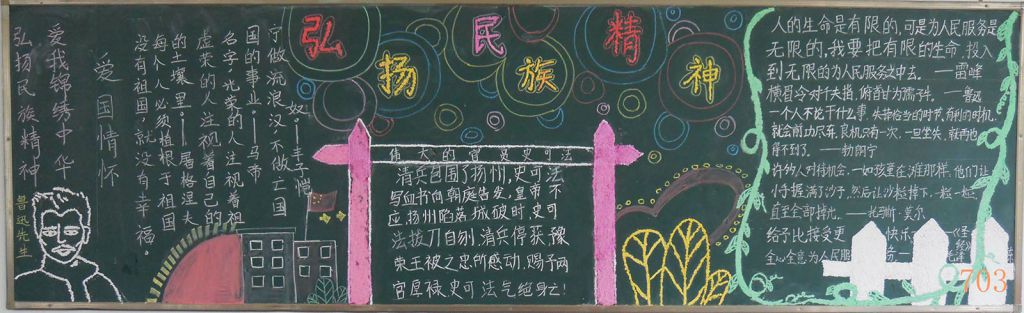 弘扬民族精神
爱我锦绣中华
弘扬民族精神
爱国情怀
鲁迅先生
宁做流浪汉，不做亡国
奴。——丰子恺
国的事业。——马志
名字，光荣的人注视着祖
虚荣的人注视着自己的
的土壤里。——屠格涅夫
每个人必须植根于祖国
没有祖国，就没有幸福。
伟大的督英史可法
清兵包围了扬州，史可法
写血书向朝庭告发，皇帝不
应，扬州陷落，城破时，史可
法拔刀自刎，清兵停获，豫
荣王被之忠所感动，赐予两
官厚禄，史可法气绝身亡！
人的生命是有限的，可是为人民服务是
无限的，我要把有限的生命，投入
到无限的为人民服务之中去。——雷峰
横眉冷对千夫指，俯首甘为孺子牛。——鲁迅
一个人不论干什么事，失掉恰当的时节，有利的时机，
就会前功尽弃，良机只有一次，一旦坐失，就再也
得不到了。——勃朗宁
许的人对待机会，一如孩童在沙滩那样，他们让
小手握满了沙子，然后让沙粒掉下，一粒一粒，
直至全部掉光。——托玛斯·莫尔
给予比接受更 快乐
全心全意为人民服务
703